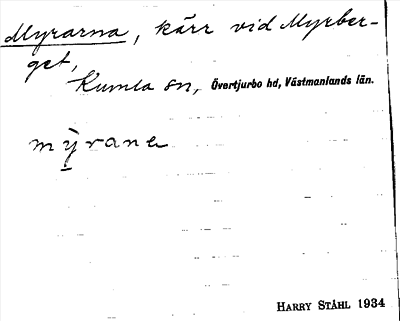 Myrarna, kärr vid Myrber-
get,
Kumla sn, Övertjurbo hd, Västmanlands län.
mỳrane
HARRY STÅHL 1934